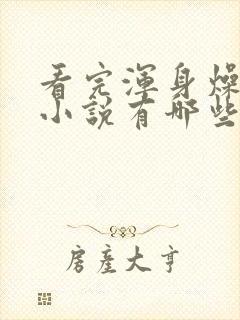 看完渾身燥
小說有哪些
房產大亨